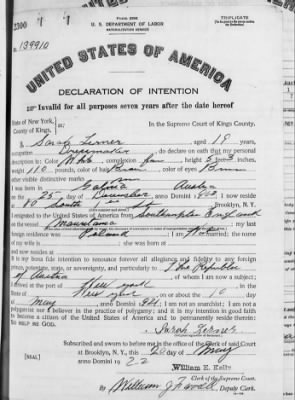 Form 2202
U. S. DEPARTMENT OF LABOR
NATURALIZATION SERVICE
TRIPLICATE
139910
UNITED STATES OF AMERICA
DECLARATION OF INTENTION
Invalid for all purposes seven years after the date hereof
State of New York,
County of Kings,
In the Supreme Court of Kings County.
I, Sarah Lerner, aged 19 years,
occupation Dressmaker, do declare on oath that my personal
description is: Color White, complexion fair, height 5 feet 3 inches,
weight 110 pounds, color of hair Brown, color of eyes Brown
other visible distinctive marks
Galicia Austria
on the 25 day of December, anno Domini 1903, I now reside
at 10 South 1st St Brooklyn, N. Y.
I emigrated to the United States of America from Southampton England
on the vessel Mauretania; my last
foreign residence was Poland; I am not married; the name
of my wife is; she was born
at and now resides
at
It is my bona fide intention to renounce forever all allegiance and fidelity to any foreign
prince, potentate, state, or sovereignty, and particularly to The Republic
of Austria, of whom I am now a subject;
I arrived at the port of New York, in the
State of New York on or about the 10 day
of May, anno Domini 1921; I am not an anarchist; I am not a
polygamist nor a believer in the practice of polygamy; and it is my intention in good faith
to become a citizen of the United States of America and to permanently reside therein:
SO HELP ME GOD.
Sarah Lerner
Subscribed and sworn to before me in the office of the Clerk of said Court
at Brooklyn, N. Y., this 20 day of May
anno Domini 1922
[SEAL]
William E. Kelly
Clerk of the Supreme Court.
By William J. Deputy Clerk.